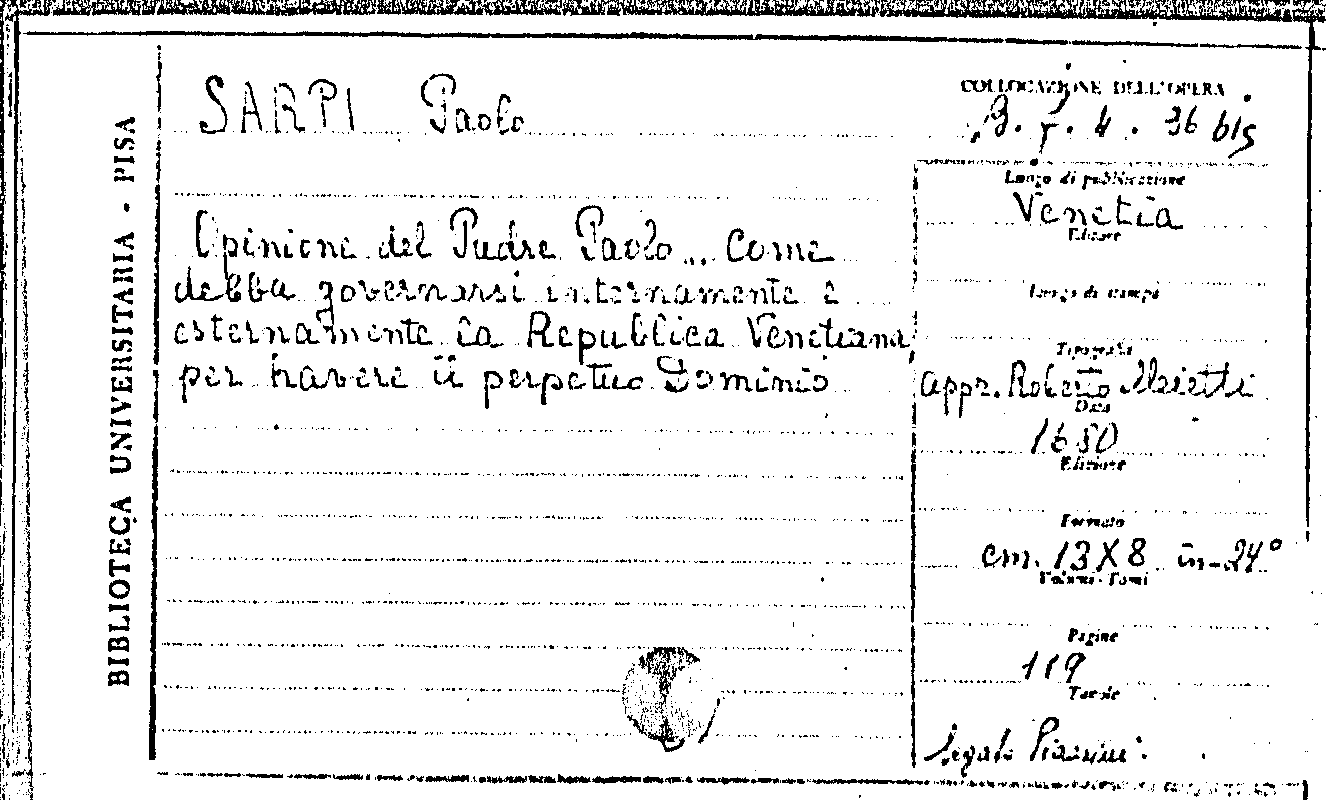 BIBLIOTECA UNIVERSITARIA - PISA
SARPI Paolo
Opinione del Padre Paolo... Come
debba governarsi internamente e
esternamente la Republica Venetiana
per havere il perpetuo Dominio
COLLOCAZIONE DELL'OPERA
4. 36 bis
Luogo di pubblicazione
Venetia
Editore
Luogo di stampa
Tipografia
appr. Roberto Meietti
Data
1680
Edizione
Formato
cm. 13X8 in-24°
Volumi - Tomi
Pagine
119
Tavole
legato